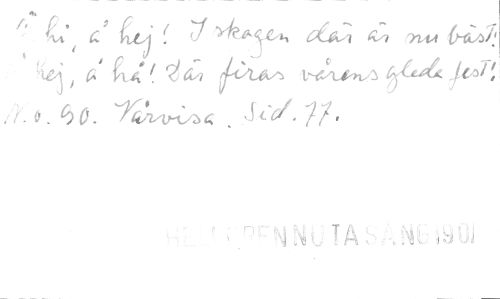 Å hi, å hej! I skogen där är nu bäst!
Å hej, å hå! Där firas vårens glada fest!
N.o. 90. Vårvisa. Sid. 77.
SÅNG 1901